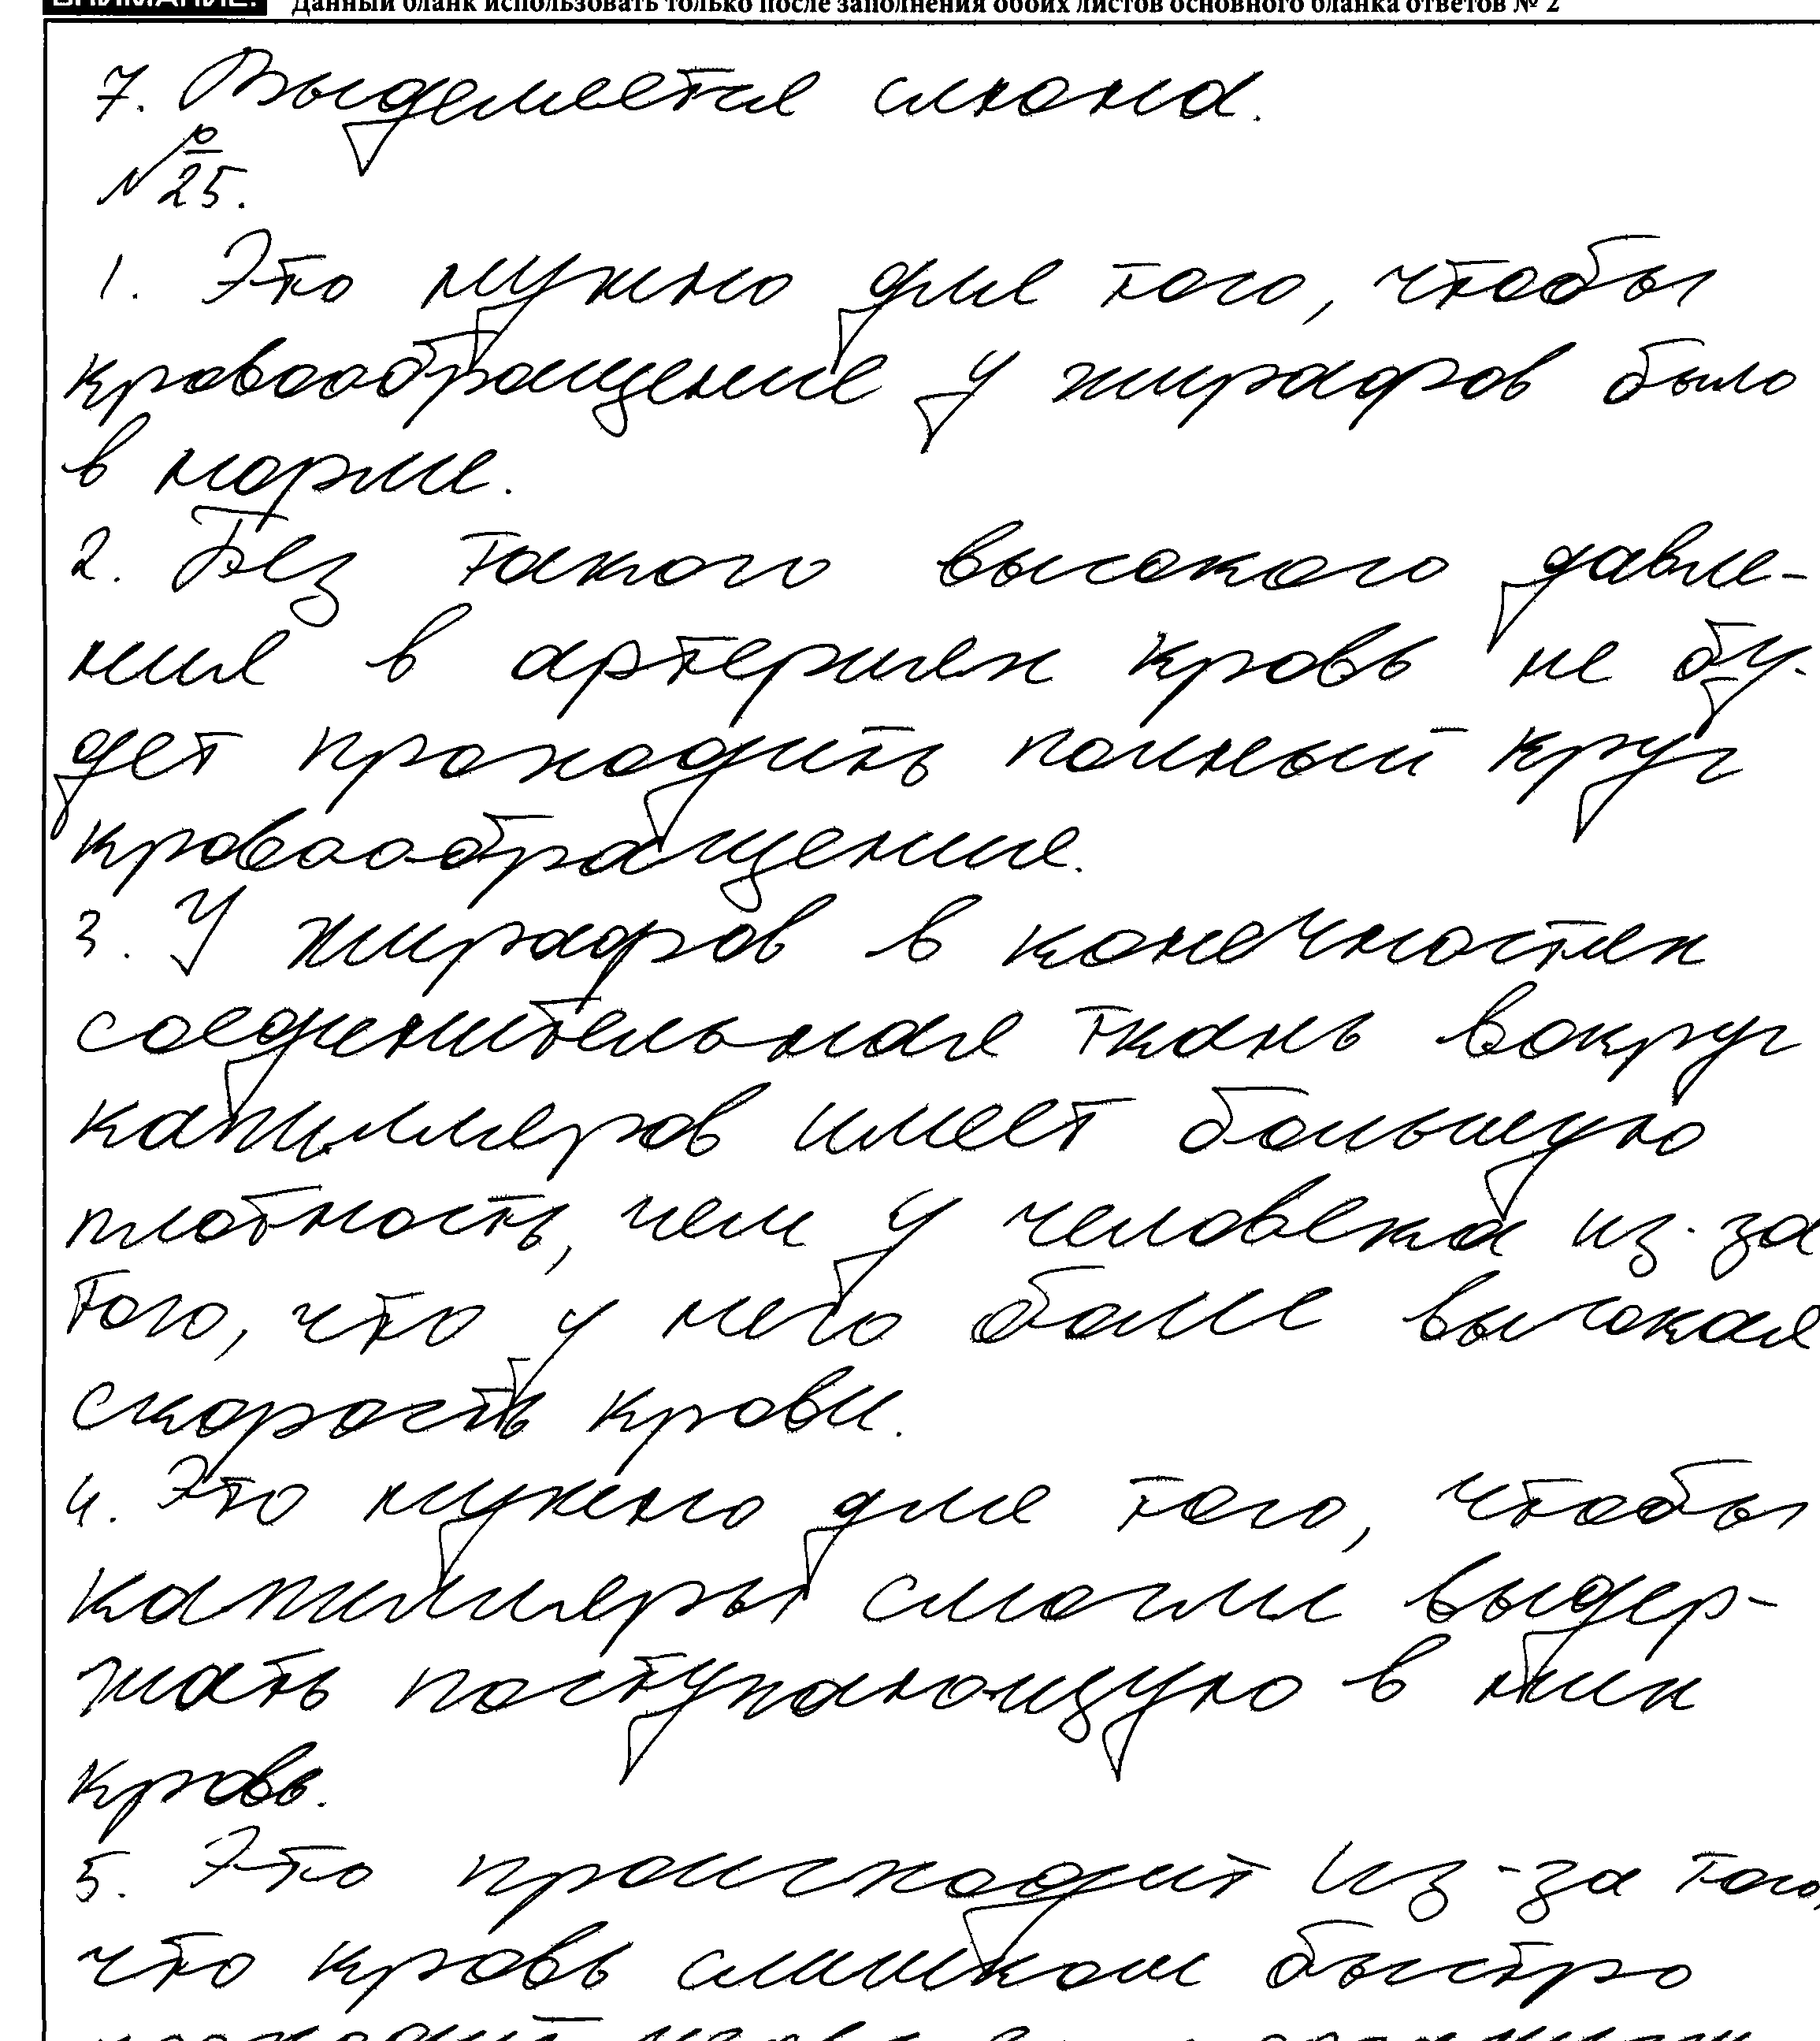 ВНИМАНИЕ! Данный бланк использовать только после заполнения обоих листов основного бланка ответов № 2
7. Выделяется слюна.
№ 25.
1. Это нужно для того, чтобы
кровообращение у жирафов было
в норме.
2. Без такого высокого давле-
ния в артериях кровь не бу-
дет проходить полный круг
кровообращения.
3. У жирафов в конечностях
соединительная ткань вокруг
капилляров имеет большую
плотность, чем у человека из-за
того, что у него более высокая
скорость крови.
4. Это нужно для того, чтобы
капилляры смогли выдер-
жать поступающую в них
кровь.
5. Это происходит из-за того,
что кровь слишком быстро